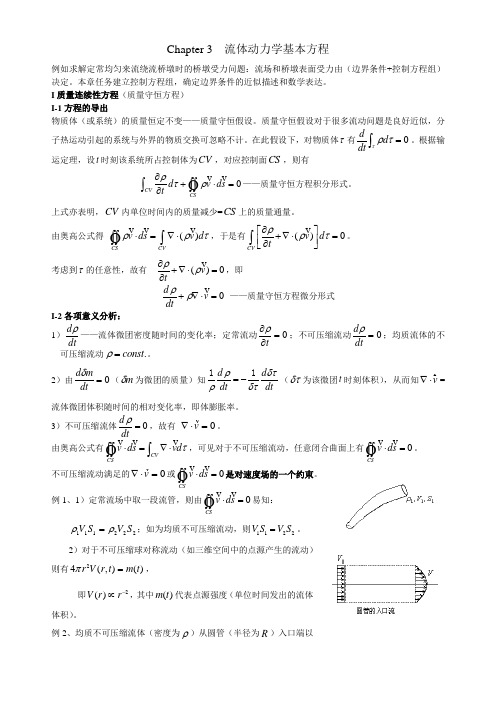 Chapter 3 流体动力学基本方程
例如求解定常均匀来流绕流桥墩时的桥墩受力问题：流场和桥墩表面受力由（边界条件+控制方程组）
决定。本章任务建立控制方程组，确定边界条件的近似描述和数学表达。
I 质量连续性方程（质量守恒方程）
I-1 方程的导出
物质体（或系统）的质量恒定不变——质量守恒假设。质量守恒假设对于很多流动问题是良好近似，分
子热运动引起的系统与外界的物质交换可忽略不计。在此假设下，对物质体 τ 有 d/dt ∫_τ ρdτ = 0。根据输
运定理，设 t 时刻该系统所占控制体为 CV，对应控制面 CS，则有
∫_CV ∂ρ/∂t dτ + ∯_CS ρv·ds = 0 ——质量守恒方程积分形式。
上式亦表明，CV 内单位时间内的质量减少=CS 上的质量通量。
由奥高公式得 ∯_CS ρv·ds = ∫_CV ∇·(ρv)dτ，于是有 ∫_CV [∂ρ/∂t + ∇·(ρv)]dτ = 0。
考虑到 τ 的任意性，故有 ∂ρ/∂t + ∇·(ρv) = 0，即
dρ/dt + ρ∇·v = 0 ——质量守恒方程微分形式
I-2 各项意义分析：
1）dρ/dt ——流体微团密度随时间的变化率；定常流动 ∂ρ/∂t = 0；不可压缩流动 dρ/dt = 0；均质流体的不
可压缩流动 ρ = const.。
2）由 dδm/dt = 0（δm 为微团的质量）知 1/ρ dρ/dt = − 1/δτ dδτ/dt（δτ 为该微团 t 时刻体积），从而知 ∇·v =
流体微团体积随时间的相对变化率，即体膨胀率。
3）不可压缩流体 dρ/dt = 0，故有 ∇·v = 0。
由奥高公式有 ∯_CS v·ds = ∫_CV ∇·vdτ，可见对于不可压缩流动，任意闭合曲面上有 ∯_CS v·ds = 0。
不可压缩流动满足的 ∇·v = 0 或 ∯_CS v·ds = 0 是对速度场的一个约束。
例 1、1）定常流场中取一段流管，则由 ∯_CS v·ds = 0 易知：
ρ₁V₁S₁ = ρ₂V₂S₂；如为均质不可压缩流动，则 V₁S₁ = V₂S₂。
ρ₁,V₁,S₁
2）对于不可压缩球对称流动（如三维空间中的点源产生的流动）
则有 4πr²V(r,t) = m(t)，
即 V(r) ∝ r⁻²，其中 m(t) 代表点源强度（单位时间发出的流体
体积）。
圆管的入口流
例 2、均质不可压缩流体（密度为 ρ）从圆管（半径为 R）入口端以